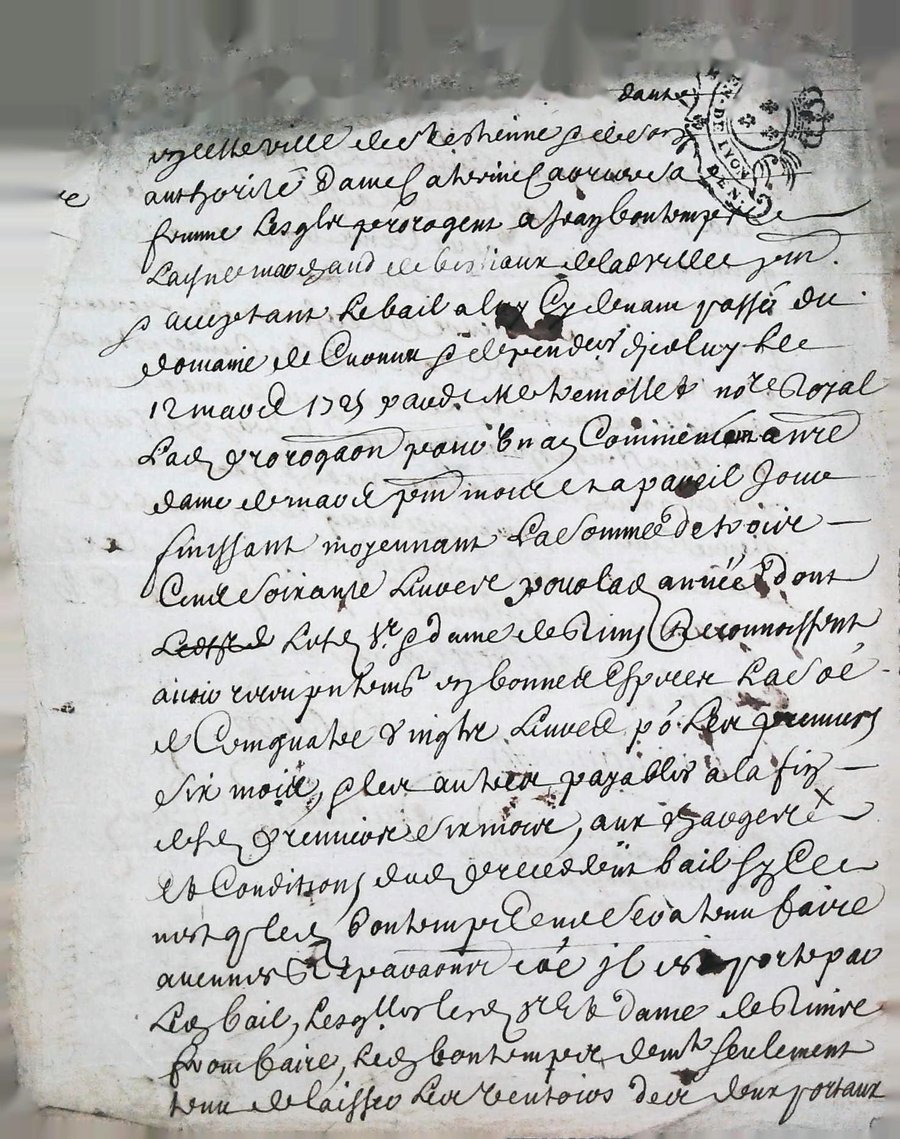 dans
EN. DE LYON
DEN.
en cette ville de St Estienne & de son
authorité dame Caterine sa
femme lesqls prorogent a Jean bontemps
Laisné marchand de bestiaux de lad ville pnt.
& acceptant Le bail a luy Cy devant passé du
domaine de & dependces d'jceluy Le
12 mars 1725 pard. Me not.re Royal
Lad prorogaon pour Un an Commencant a nre
dame de mars pnt mois et a pareil Jour
finissant moyennant La Somme de trois
Cents Soixante Livres pour lad année dont
Lesd Sr & dame de Reconnoissent
avoir receu pntemt en bonnes Especes La Soe
de Cent quatre Vingts Livres po. Les premiers
Six mois, & les autres payables a la fin
desd premiers Six mois, aux charges
et Conditions dud precedent bail Sy Ce
nest q led bontemps ne Sera tenu faire
aucunes Reparaons coe jl est porté par
Led bail, Lesqlles lesd Sr et dame de
front faire, Led bontemps demt Seulement
tenu de laisser Les des deux portaux